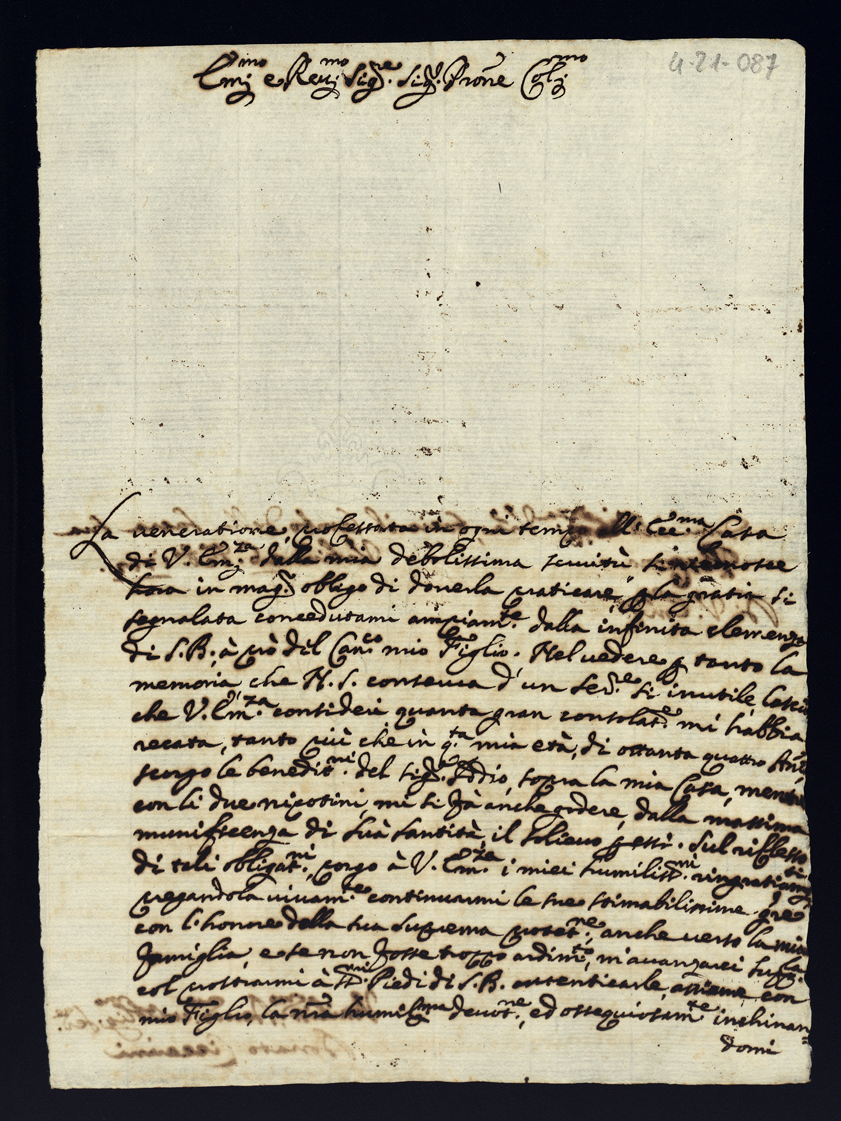 4-21-087
Em.mo e Rev.mo Sig.re Sig.r Prone Col.mo
La veneratione, professata in ogni tempo all'Ecc.ma Casa
di V. Em.za dalla mia debolissima servitù si riconosce
hora in mag.r obligo di doverla praticare, p la gratia si
segnalata concedutami ampiam.te dalla infinita clemenza
di S.B. à prò del Can.co mio Figlio. Nel vedere p tanto la
memoria che N.S. conserva d'un Ser.re si inutile, lascio
che V. Em.za consideri quanta gran consolat.e mi habbia
recata, tanto più che in q.ta mia età, di ottanta quattro Anni
scorgo le beneditt.ni del Sig.re Iddio, sopra la mia Casa, mentre
con li due nipotini, mi si fà anche godere, dalla massima
munificenza di Suà Santità, il solievo p essi. Sul riflesso
di tali obligat.ni, porgo à V. Em.za i miei humiliss.mi ringratiam.ti
pregandola vivam.te continuarmi le sue stimabilissime gre
con l'honore della sua suprema protet.ne, anche verso la mia
famiglia, e se non fosse troppo ardim.to, m'avanzarei supp.la
col prostrarmi à SS.mi Piedi di S.B. autenticarle, assieme con
mio Figlio, la nra humiliss.ma devot.ne, ed ossequiosam.te inchinan=
domi